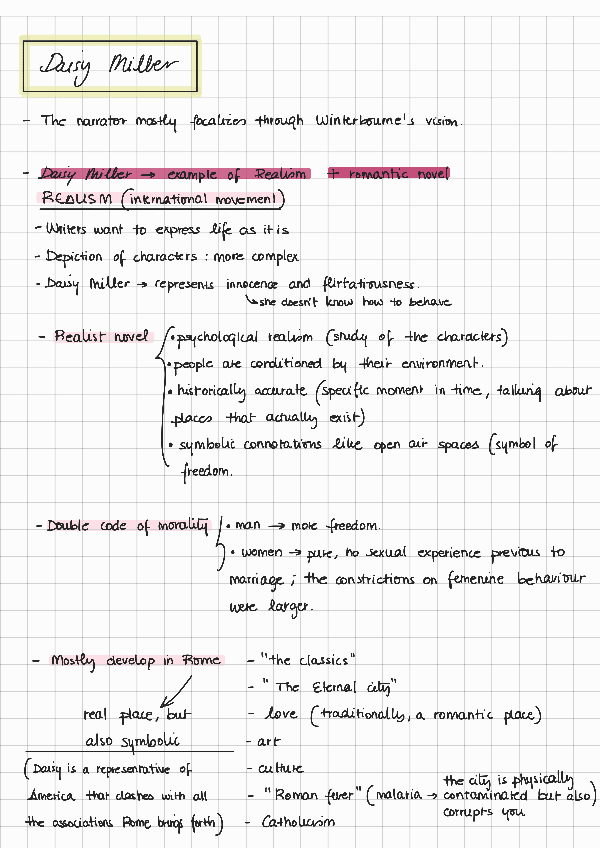 Daisy Miller
- The narrator mostly focalizes through Winterbourne's vision.
- Daisy Miller → example of Realism + romantic novel
REALISM (international movement)
- Writers want to express life as it is
- Depiction of characters : more complex
- Daisy Miller → represents innocence and flirtatiousness.
↳ she doesn't know how to behave
- Realist novel
• psychological realism (study of the characters)
• people are conditioned by their environment.
• historically accurate (specific moment in time, talking about
places that actually exist)
• symbolic connotations like open air spaces (symbol of
freedom.
- Double code of morality
• man → more freedom.
• women → pure, no sexual experience previous to
marriage ; the constrictions on femenine behaviour
were larger.
- Mostly develop in Rome
real place, but
also symbolic
(Daisy is a representative of
America that clashes with all
the associations Rome brings forth)
- "the classics"
- "The Eternal city"
- love (traditionally, a romantic place)
- art
- culture
- "Roman fever" (malaria → the city is physically
contaminated but also)
corrupts you
- Catholicism